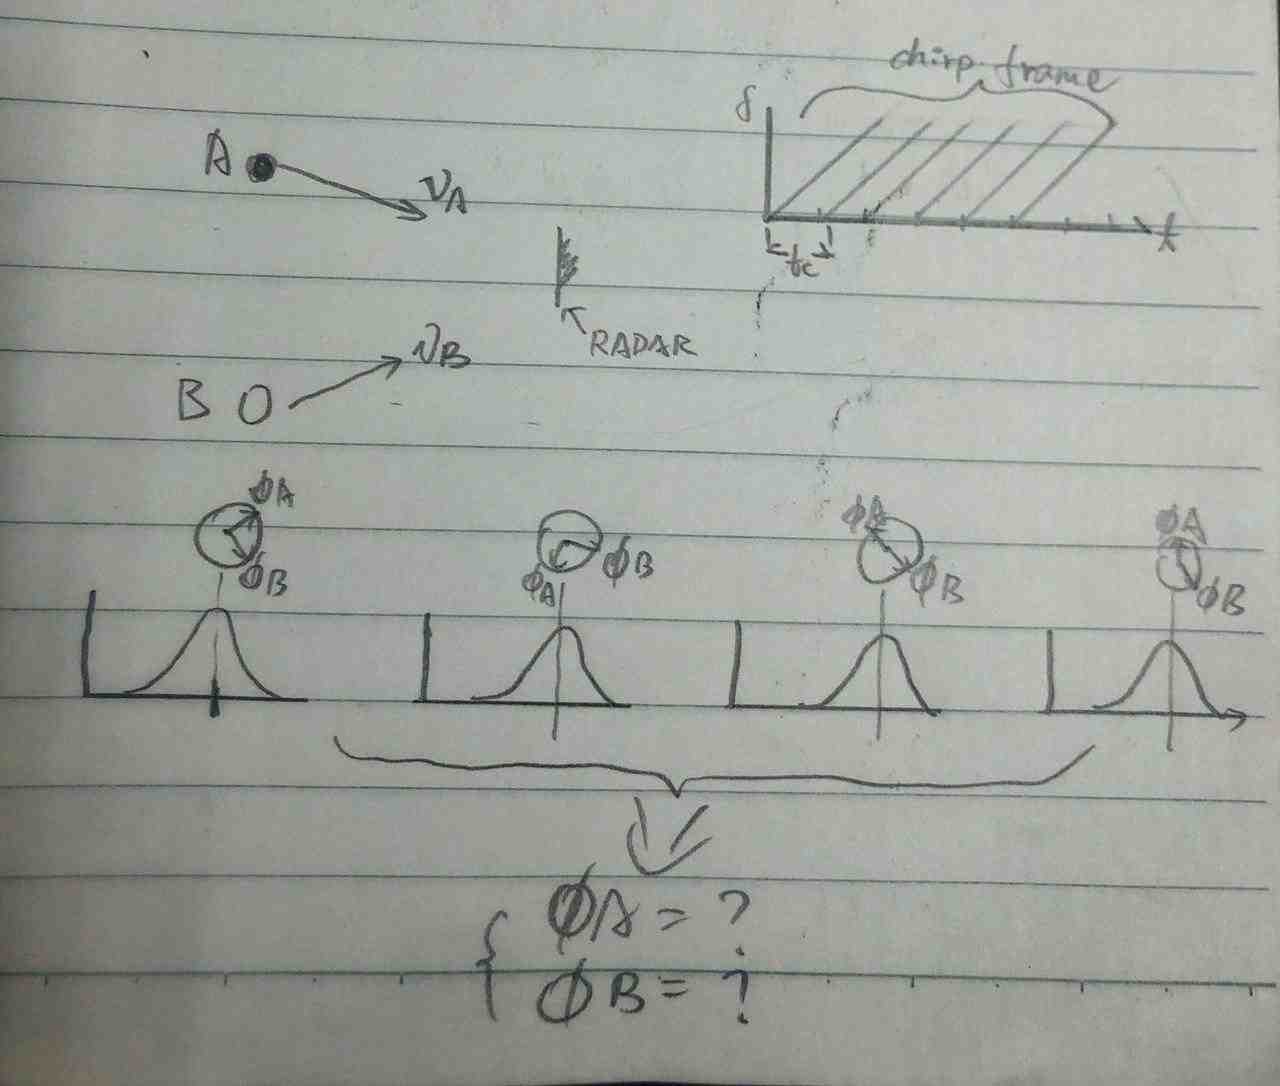 chirp frame
f
A
VA
t
tc
RADAR
VB
B
ϕA
ϕB
ϕA
ϕB
ϕA
ϕB
ϕA
ϕB
ϕA = ?
ϕB = ?